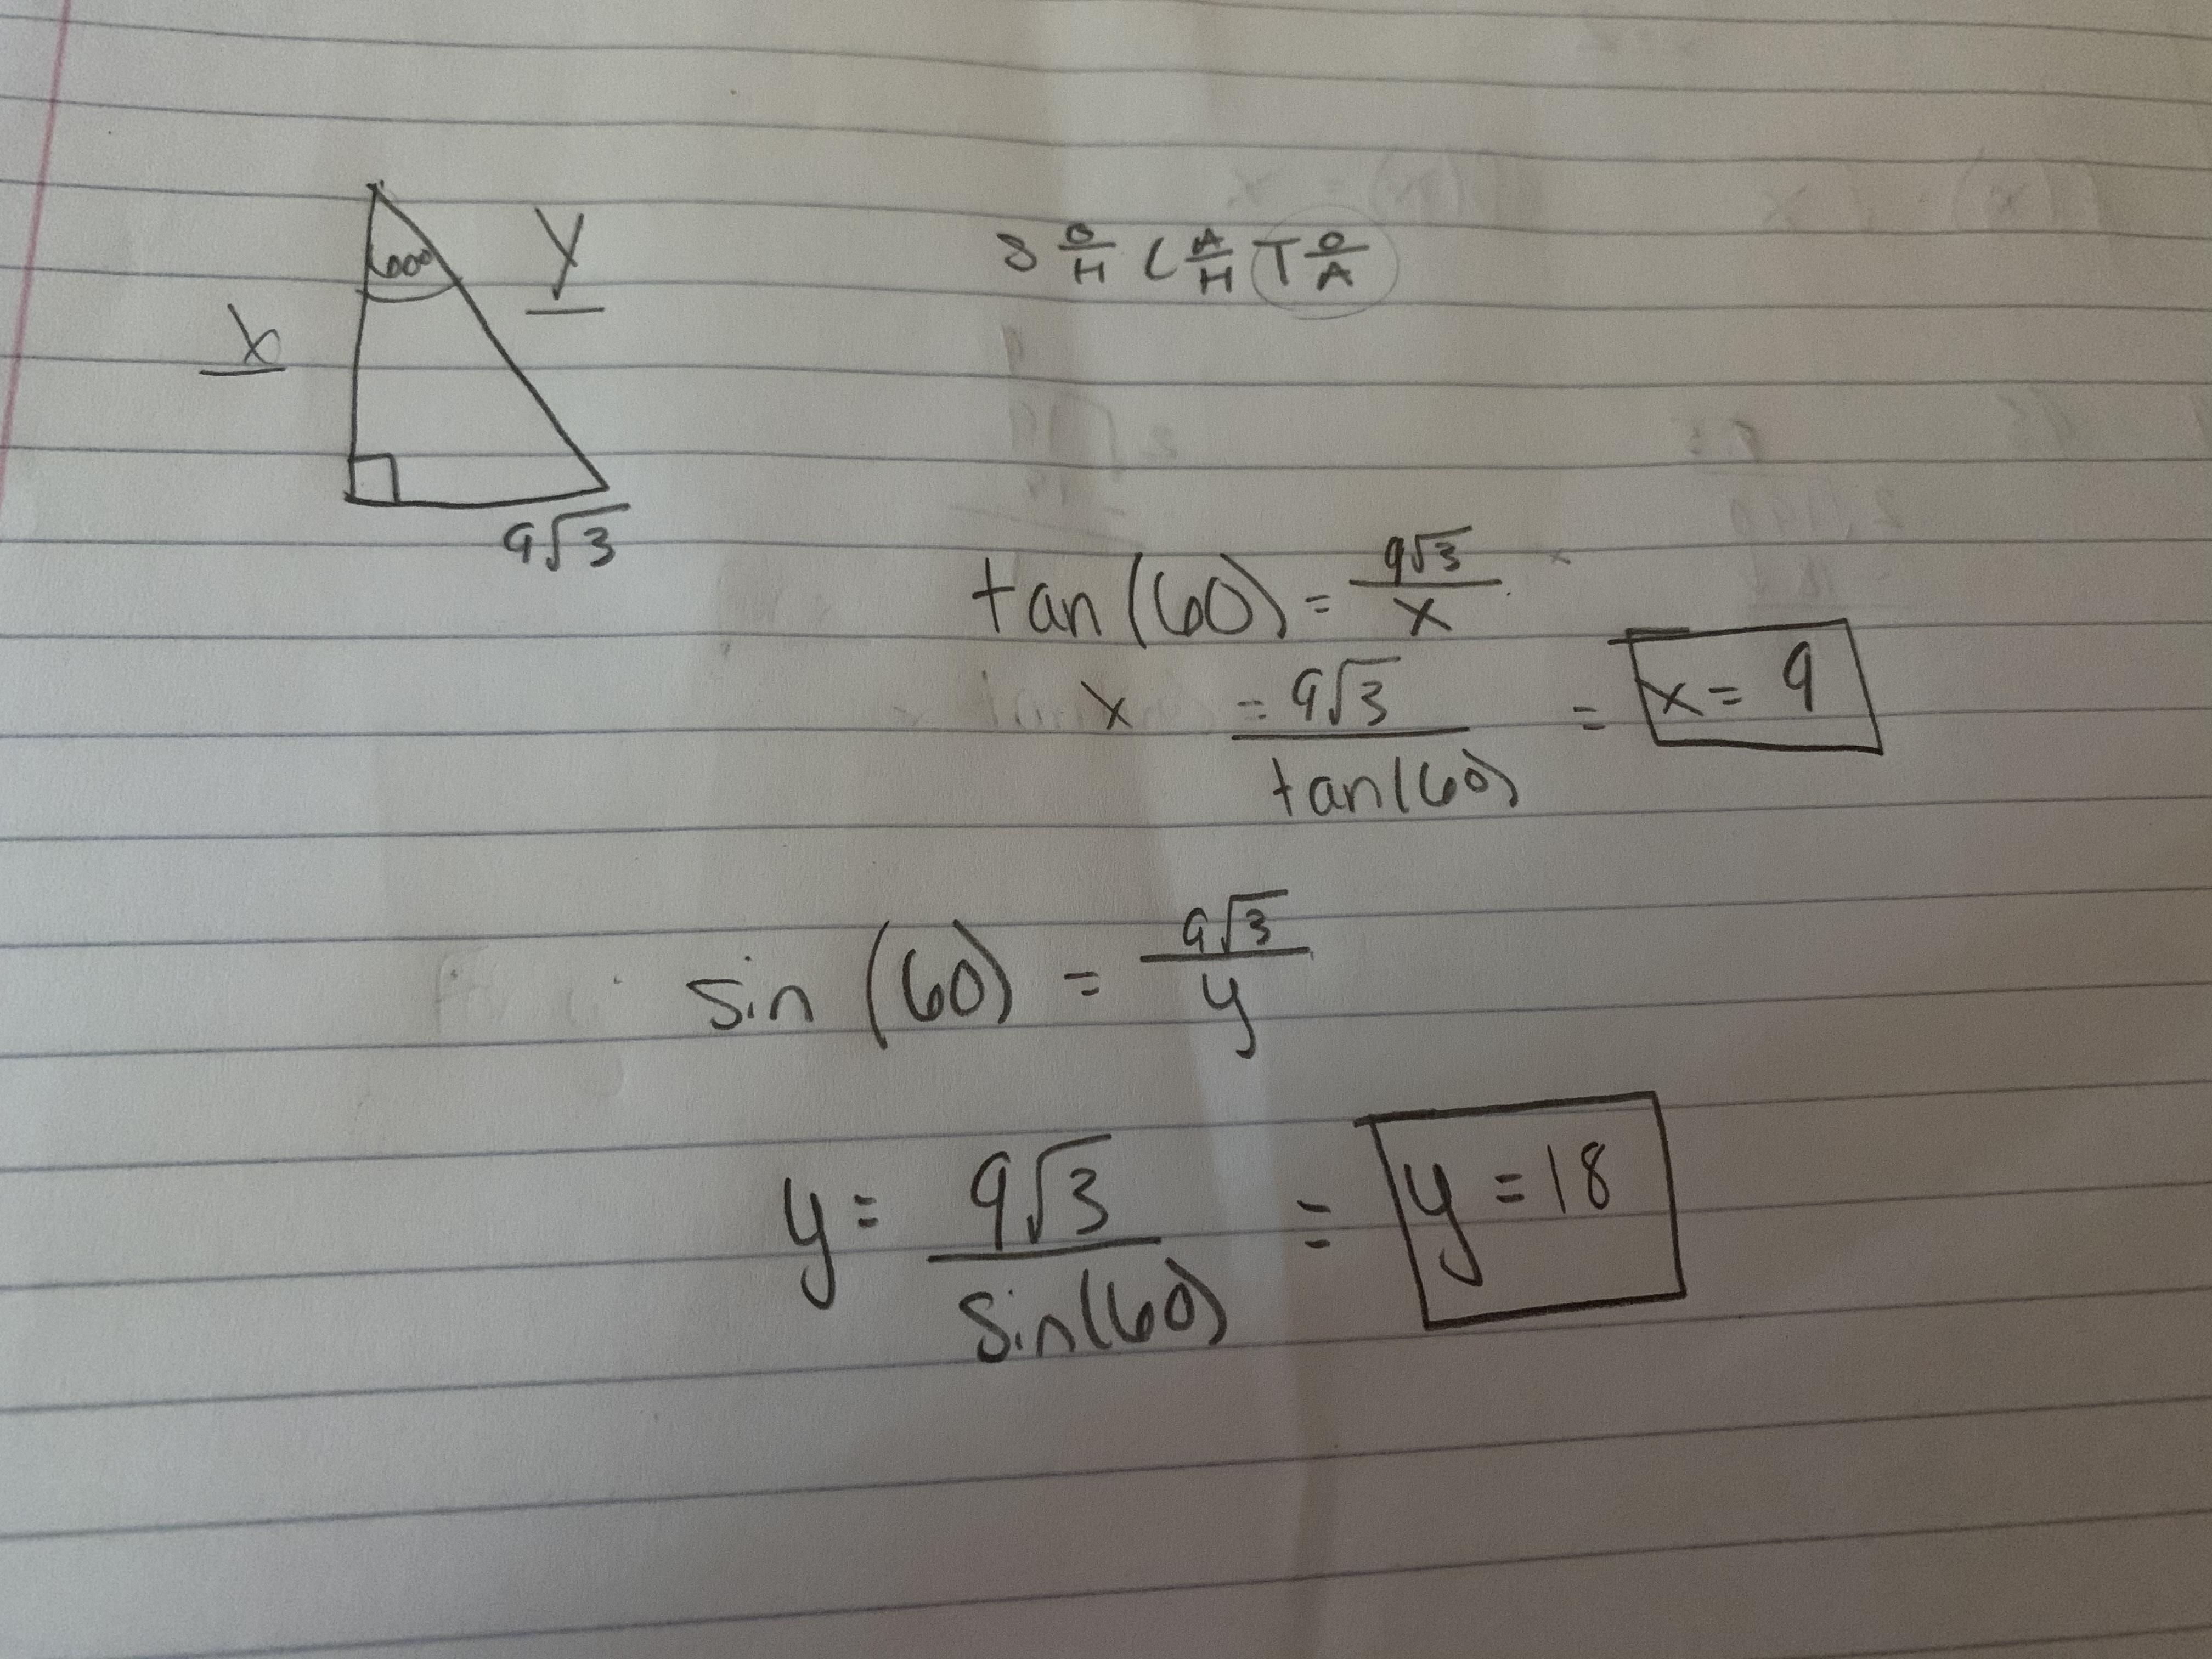 60°
y
x
9√3
S O/H C A/H T O/A
tan(60) = 9√3/x
x = 9√3/tan(60) = x = 9
sin(60) = 9√3/y
y = 9√3/sin(60) = y = 18